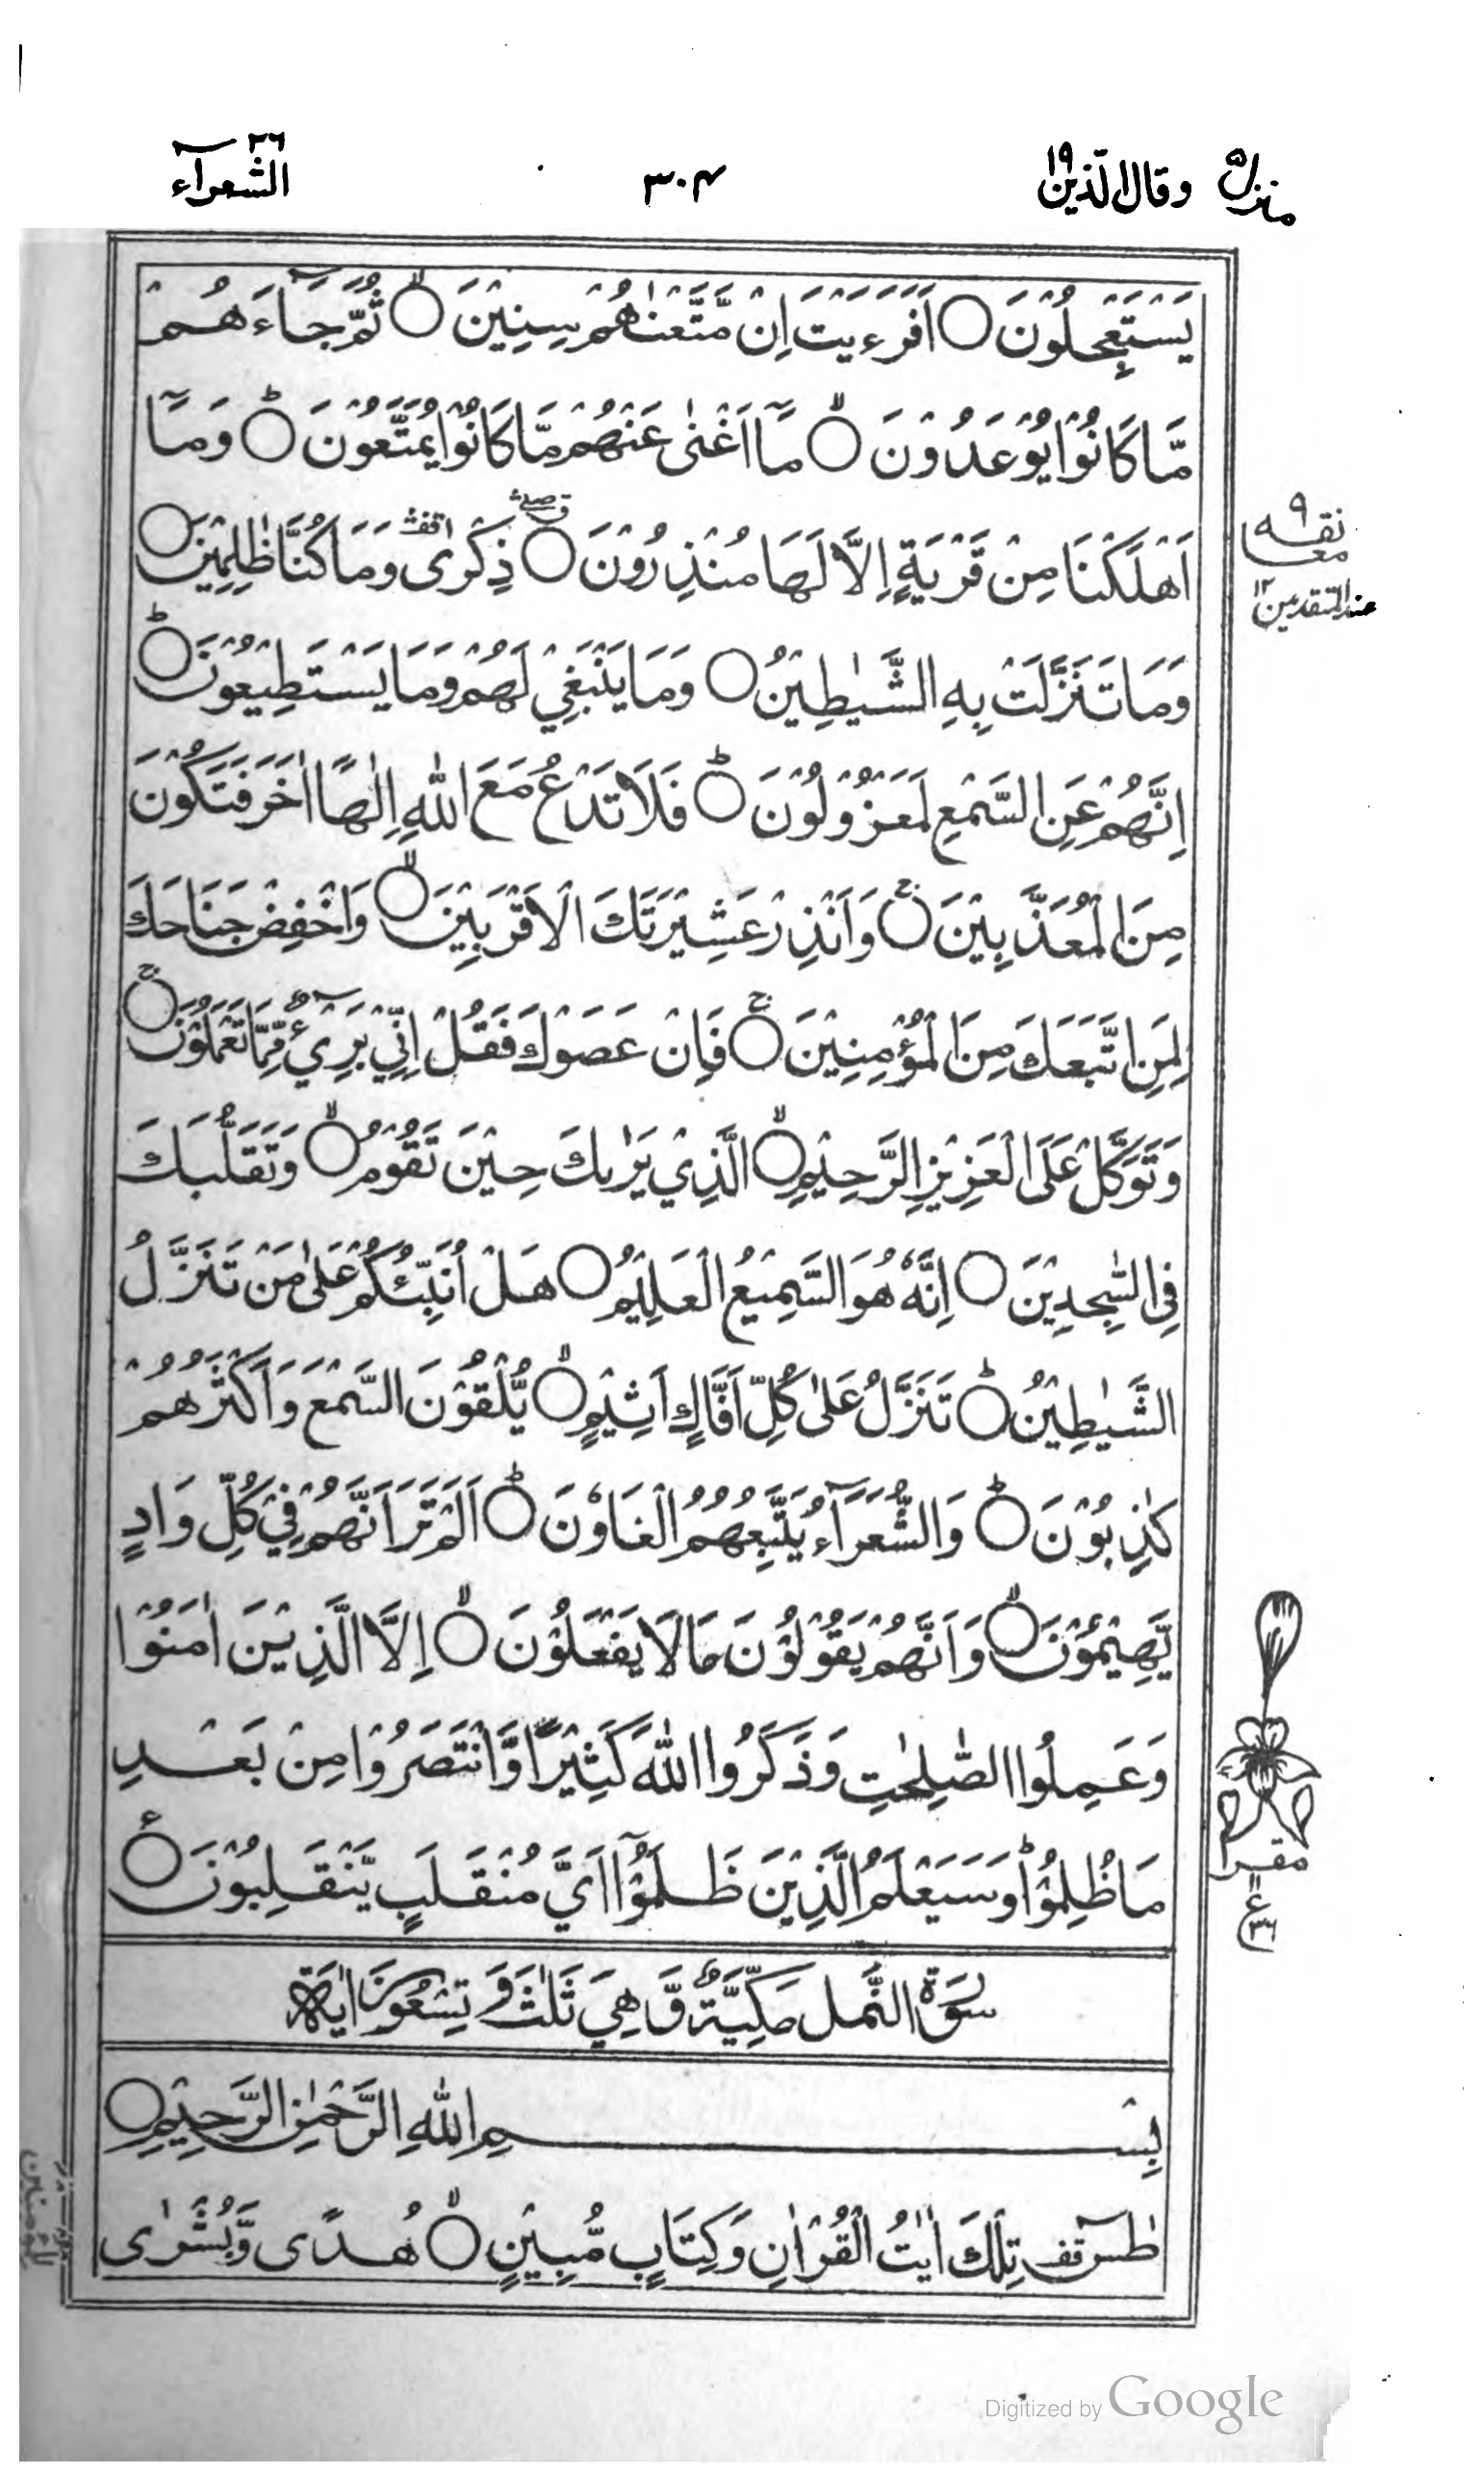 منزل ۵ وقال الذین ۱۹
۳۰۴
الشعرآء ۲۶
يَسْتَعْجِلُوْنَ ○ اَفَرَءَيْتَ اِنْ مَّتَّعْنٰهُمْ سِنِيْنَ ○ۙ ثُمَّ جَآءَهُمْ
مَّا كَانُوْا يُوْعَدُوْنَ ○ۙ مَآ اَغْنٰى عَنْهُمْ مَّا كَانُوْا يُمَتَّعُوْنَ ○ؕ وَمَآ
اَهْلَكْنَا مِنْ قَرْيَةٍ اِلَّا لَهَا مُنْذِرُوْنَ ○ ذِكْرٰى وَمَا كُنَّا ظٰلِمِيْنَ ○
وَمَا تَنَزَّلَتْ بِهِ الشَّيٰطِيْنُ ○ وَمَا يَنْۢبَغِيْ لَهُمْ وَمَا يَسْتَطِيْعُوْنَ ○ؕ
اِنَّهُمْ عَنِ السَّمْعِ لَمَعْزُوْلُوْنَ ○ؕ فَلَا تَدْعُ مَعَ اللّٰهِ اِلٰهًا اٰخَرَ فَتَكُوْنَ
مِنَ الْمُعَذَّبِيْنَ ○ۚ وَاَنْذِرْ عَشِيْرَتَكَ الْاَقْرَبِيْنَ ○ۙ وَاخْفِضْ جَنَاحَكَ
لِمَنِ اتَّبَعَكَ مِنَ الْمُؤْمِنِيْنَ ○ۚ فَاِنْ عَصَوْكَ فَقُلْ اِنِّيْ بَرِيْٓءٌ مِّمَّا تَعْمَلُوْنَ ○ۚ
وَتَوَكَّلْ عَلَى الْعَزِيْزِ الرَّحِيْمِ ○ۙ الَّذِيْ يَرٰىكَ حِيْنَ تَقُوْمُ ○ۙ وَتَقَلُّبَكَ
فِى السّٰجِدِيْنَ ○ اِنَّهٗ هُوَ السَّمِيْعُ الْعَلِيْمُ ○ هَلْ اُنَبِّئُكُمْ عَلٰى مَنْ تَنَزَّلُ
الشَّيٰطِيْنُ ○ؕ تَنَزَّلُ عَلٰى كُلِّ اَفَّاكٍ اَثِيْمٍ ○ۙ يُّلْقُوْنَ السَّمْعَ وَاَكْثَرُهُمْ
كٰذِبُوْنَ ○ؕ وَالشُّعَرَآءُ يَتَّبِعُهُمُ الْغَاوٗنَ ○ؕ اَلَمْ تَرَ اَنَّهُمْ فِيْ كُلِّ وَادٍ
يَّهِيْمُوْنَ ○ۙ وَاَنَّهُمْ يَقُوْلُوْنَ مَا لَا يَفْعَلُوْنَ ○ۙ اِلَّا الَّذِيْنَ اٰمَنُوْا
وَعَمِلُوا الصّٰلِحٰتِ وَذَكَرُوا اللّٰهَ كَثِيْرًا وَّانْتَصَرُوْا مِنْۢ بَعْدِ
مَا ظُلِمُوْا ؕ وَسَيَعْلَمُ الَّذِيْنَ ظَلَمُوْٓا اَيَّ مُنْقَلَبٍ يَّنْقَلِبُوْنَ ○ع
سُوْرَةُ النَّمْلِ مَكِّيَّةٌ وَّهِيَ ثَلٰثٌ وَّتِسْعُوْنَ اٰيَةً
بِسْمِ اللّٰهِ الرَّحْمٰنِ الرَّحِيْمِ ○
طٰسٓ قف تِلْكَ اٰيٰتُ الْقُرْاٰنِ وَكِتَابٍ مُّبِيْنٍ ○ۙ هُدًى وَّبُشْرٰى
معانقه ۹
عند المتقدمین ۱۲
مقرا
Digitized by Google